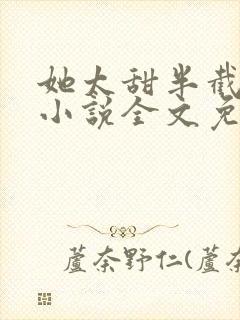 她太甜半截
小说全文免
蘆奈野仁(蘆奈